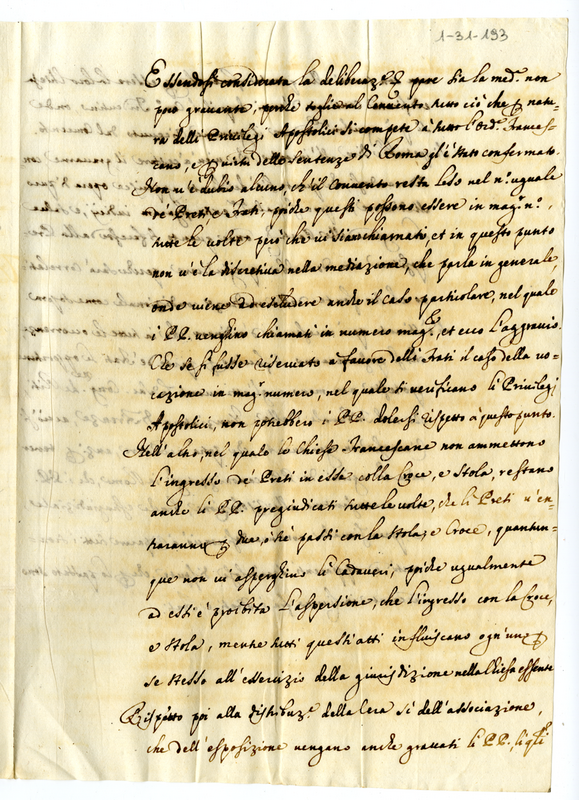 1-31-193
Essendosi considerata la deliberaz.e pare sia la med.a non
poco gravante, poiche toglie al Convento tutto ciò che p natu=
ra delli Privilegi Apostolici si compete à tutto l'ord.e Frances=
cano, e p virtù delle sentenze di Roma gl'è stato confermato.
Non v'è dubio alcuno, ch'il Convento resta leso nel n.o uguale
de Preti e Frati, poiche questi possono essere in mag.r n.o,
tutte le volte però che vi sian chiamati, et in questo punto
non v'è la discretiva nella mediazione, che parla in generale,
onde viene ad escludere anche il caso particolare, nel quale
i PP. venghino chiamati in numero mag.re, et ecco l'aggravio.
Che se si fusse riservato a favore delli Frati il caso della vo=
cazione in mag.r numero, nel quale si verificano li Privilegj
Apostolici, non potrebbero i PP. dolersi rispetto à questo punto.
Nell'altro, nel quale le Chiese Francescane non ammettono
l'ingresso de Preti in essa colla Croce, e Stola, restano
anche li PP. pregiudicati tutte le volte, che li Preti v'en=
traranno p due, o trè passi con la Stola, e Croce, quantun=
que non vi asperghino li Cadaveri, poiche ugualmente
ad essi è proibita l'aspersione, che l'ingresso con la Croce,
e Stola, mentre tutti questi atti influiscano ogn'uno p
se stesso all'essercizio della giurisdizione nella Chiesa essente
Rispetto poi alla distribuz.e della Cera sì dell'associazione,
che dell'esposizione vengano anche gravati li PP., li q.li